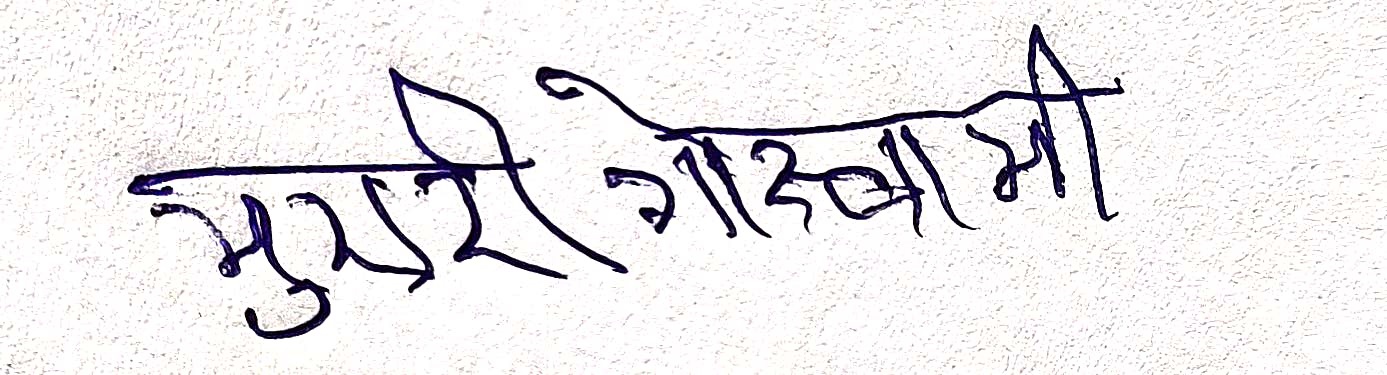 मुरारी गोस्वामी